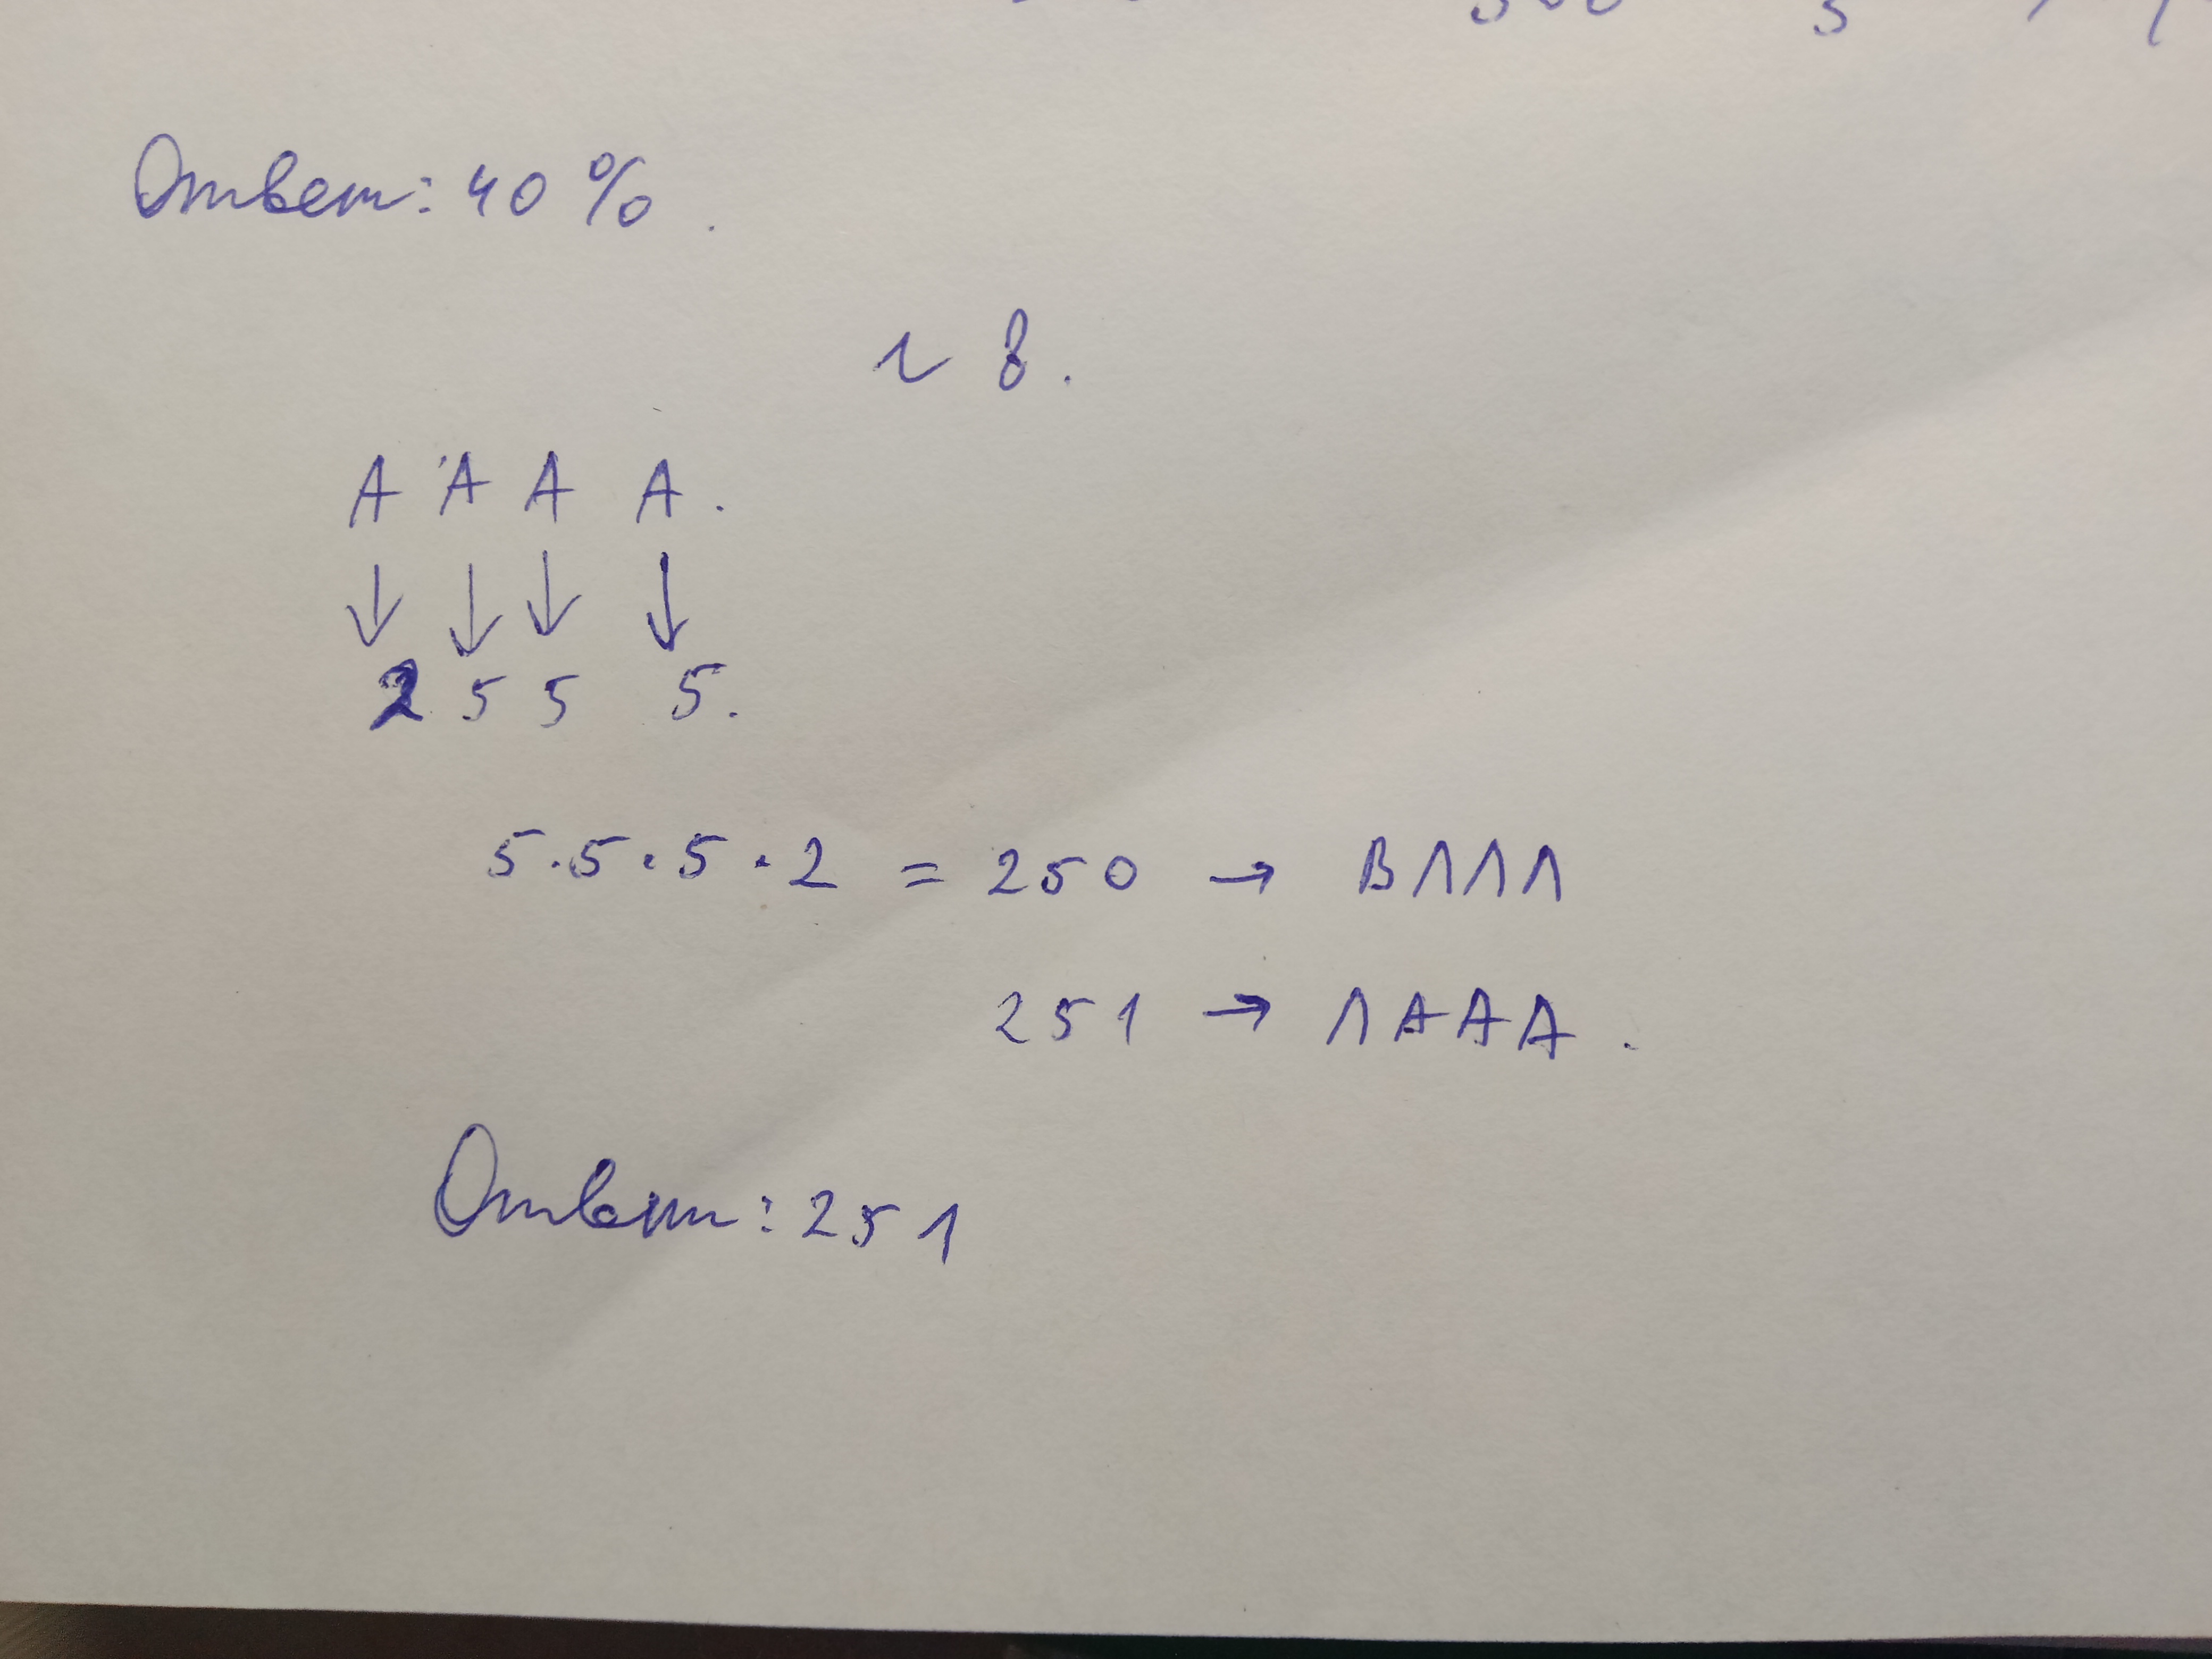 Ответ: 40 %.
N 8.
А А А А.
↓ ↓ ↓ ↓
2 5 5 5.
5·5·5·2 = 250 → ВЛЛЛ
251 → ЛААА.
Ответ: 251